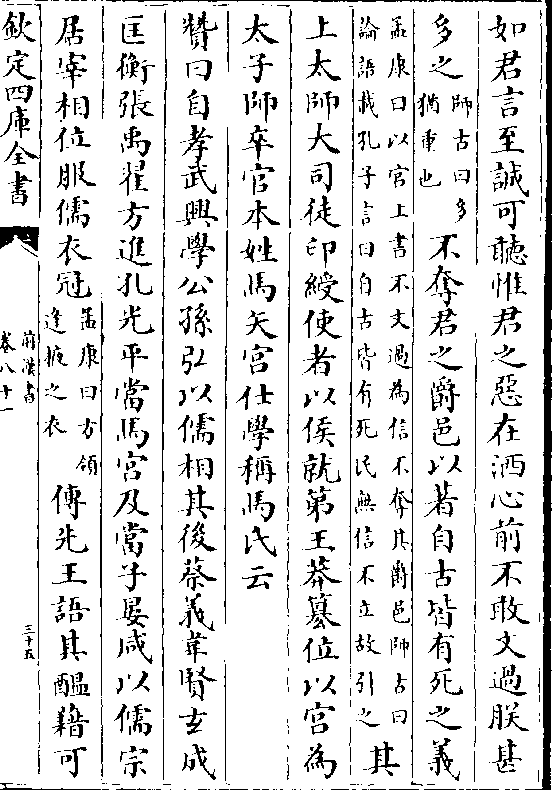 如君言至誠可聽惟君之惡在洒心前不敢文過朕甚
多之師古曰多猶重也不奪君之爵邑以著自古皆有死之義
孟康曰以宮上書不文過為信不奪其爵邑師古曰論語載孔子言曰自古皆有死民無信不立故引之其
上太師大司徒印綬使者以侯就第王莽篡位以宮為
太子師卒官本姓馬矢宮仕學稱馬氏云
贊曰自孝武興學公孫弘以儒相其後蔡義韋賢玄成
匡衡張禹翟方進孔光平當馬宮及當子晏咸以儒宗
居宰相位服儒衣冠孟康曰方領逢掖之衣傳先王語其醖藉可
欽定四庫全書
前漢書
卷八十一
三十五